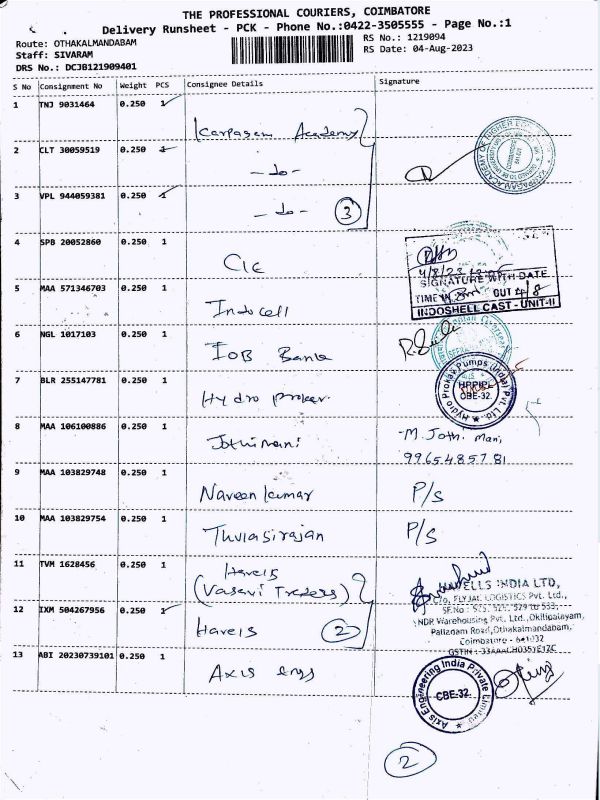 THE PROFESSIONAL COURIERS, COIMBATORE
Delivery Runsheet - PCK - Phone No.:0422-3505555 - Page No.:1
Route: OTHAKALMANDABAM
RS No.: 1219094
Staff: SIVARAM
RS Date: 04-Aug-2023
DRS No.: DCJB121909401
S No Consignment No Weight PCS Consignee Details Signature
1 TNJ 9031464 0.250 1 Karpagam Academy
KARPAGAM ACADEMY OF HIGHER
2 CLT 30059519 0.250 1 -do-
3 VPL 944059381 0.250 1 -do- 3
4 SPB 20052860 0.250 1 CIE
4/8/23
SIGNATURE WITH DATE
TIME IN OUT 4/8
INDOSHELL CAST - UNIT-II
5 MAA 571346703 0.250 1 Indocell
6 NGL 1017103 0.250 1 IOB Bank
7 BLR 255147781 0.250 1 Hydro proker
Hydro Prokav Pumps (India) Pvt. Ltd.
HPPIPL
CBE-32.
8 MAA 106100886 0.250 1 Jothimani M. Jothi Mani
9965485781
9 MAA 103829748 0.250 1 Naveen kumar P/S
10 MAA 103829754 0.250 1 Thulasirajan P/S
11 TVM 1628456 0.250 1 Havels
(Vasavi Traders)
12 IXM 504267956 0.250 1 Havels 2
HAVELLS INDIA LTD,
C/o, FLYJAC LOGISTICS Pvt. Ltd.,
SF.No : 525, 526, 529 to 533,
NDR Warehousing Pvt. Ltd., Okilipalayam,
Palladam Road, Othakalmandabam,
Coimbatore - 641032
13 ABI 20230739101 0.250 1 Axis engs
Axis Engineering India Private Limited
CBE-32
2